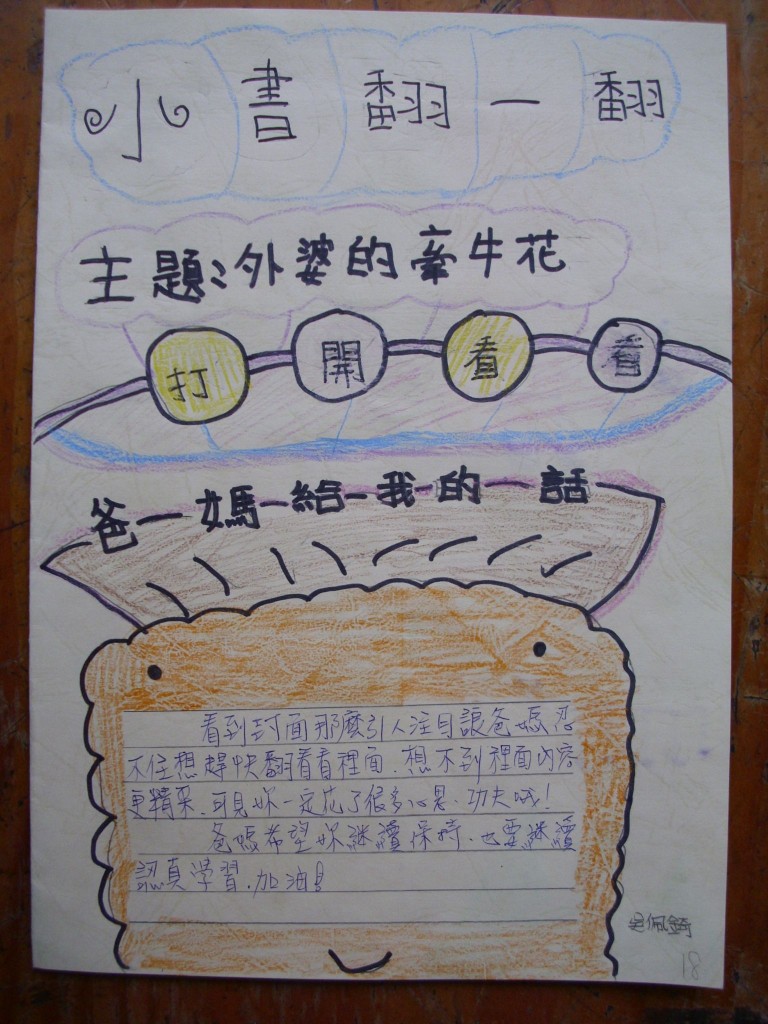 小書翻一翻
主題:外婆的牽牛花
打開看看
爸媽給我的話
看到封面那麼引人注目讓爸媽忍
不住想趕快翻看看裡面.想不到裡面內容
更精采.可見妳一定花了很多心思.功夫哦!
爸媽希望妳繼續保持.也要繼續
認真學習.加油!
佩錡
18